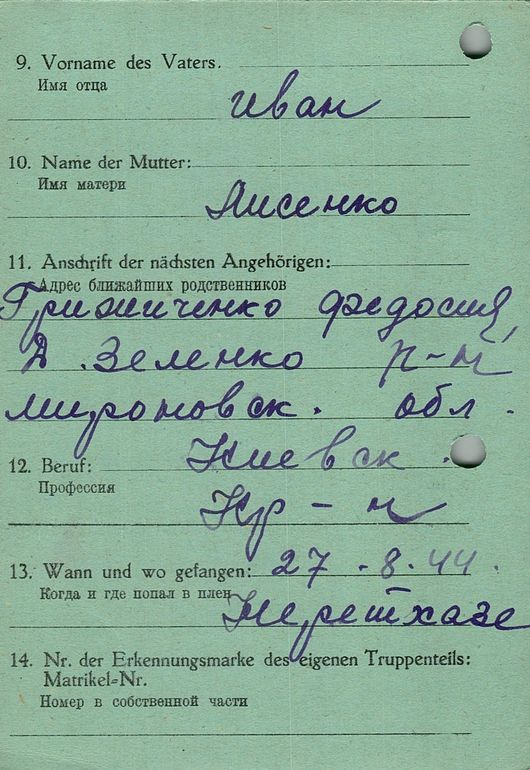 9. Vorname des Vaters.
Имя отца
Иван
10. Name der Mutter:
Имя матери
Лисенко
11. Anschrift der nächsten Angehörigen:
Адрес ближайших родственников
Грижиченко Федосия,
Д. Зеленко р-н
Мироновск. обл.
12. Beruf:
Киевск.
Профессия
Кр-н
13. Wann und wo gefangen:
27.8.44.
Когда и где попал в плен
14. Nr. der Erkennungsmarke des eigenen Truppenteils:
Matrikel-Nr.
Номер в собственной части